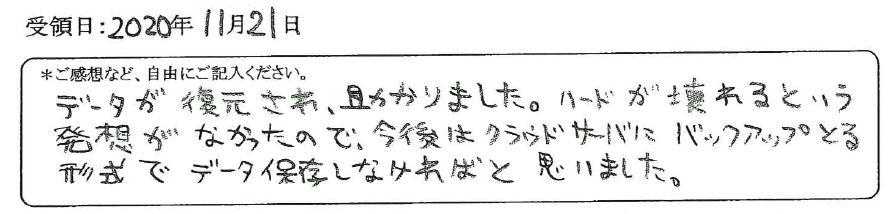 受領日:2020年11月21日
*ご感想など、自由にご記入ください。
データが復元され、助かりました。ハードが壊れるという
発想がなかったので、今後はクラウドサーバにバックアップとる
形式でデータ保存しなければと思いました。